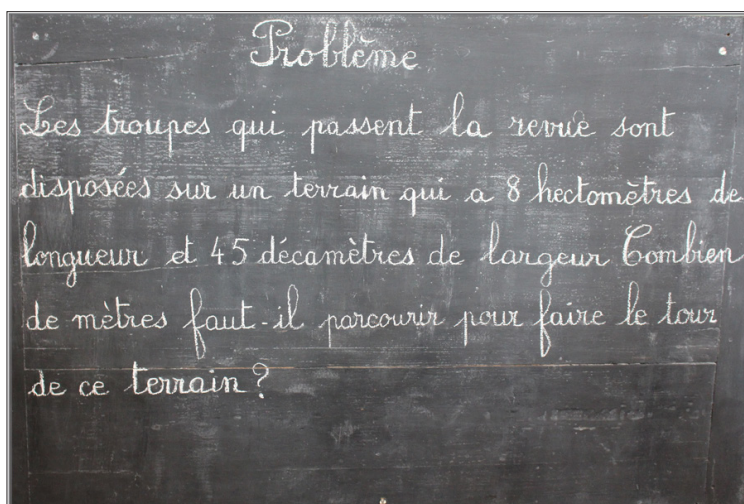 Problème
Les troupes qui passent la revue sont
disposées sur un terrain qui a 8 hectomètres de
longueur et 45 décamètres de largeur Combien
de mètres faut-il parcourir pour faire le tour
de ce terrain ?